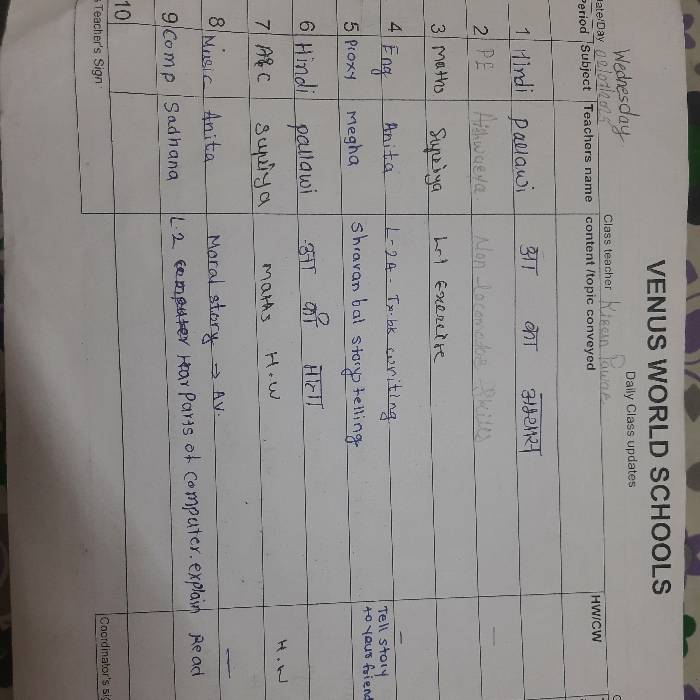 VENUS WORLD SCHOOLS
Daily Class updates
Wednesday
Date/Day
Class teacher
Period Subject Teachers name content /topic conveyed HW/CW
1 Hindi pallawi
2 PE Non-locomotor Skills
3 maths Supriya L-1 Exercise
4 Eng Anita L-2A - Tx.bk writing
5 Proxy megha Shravan bal story telling Tell story to your friend
6 Hindi pallawi
7 A&C Supriya maths H.W H.W
8 Music Anita Moral story → AV.
9 Comp Sadhana L.2 Parts of computer. explain Read
10
Teacher's Sign
Coordinator's